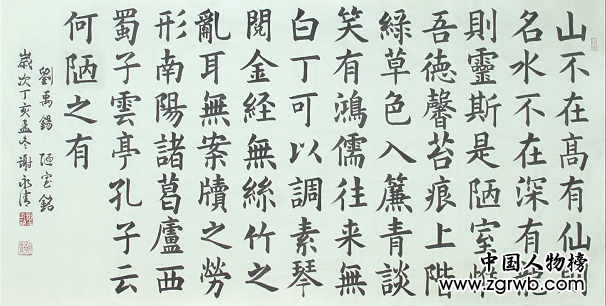 山不在髙有仙則
名水不在深有龍
則靈斯是陋室惟
吾德馨苔痕上階
綠草色入簾青談
笑有鴻儒往來無
白丁可以調素琴
閱金経無絲竹之
亂耳無案牘之勞
形南陽諸葛廬西
蜀子雲亭孔子云
何陋之有
劉禹錫 陋室銘
歲次丁亥孟冬謝永清
中国人物榜
www.zgrwb.com